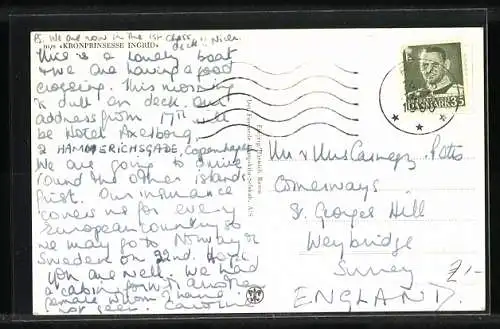 PS. We are now in the 1st class
deck!! Nice.
m/s «KRONPRINSESSE INGRID»
This is a lovely boat
& we are having a good
crossing. This morning
is dull on deck. Our
address from 17th will
be Hotel Axelborg,
2 HAMMERICHSGADE, Copenhagen
We are going to drive
round the other islands
first. Our insurance
covers us for every
European country so
we may go to Norway or
Sweden on 22nd. Hope
you are well. We had
a cabin for 4, another
female whom I have
not seen. Caroline
DANMARK 35
Mr & Mrs Carnegy Potts
Comerways,
St. Georges Hill
Weybridge
Surrey
ENGLAND.
7/-